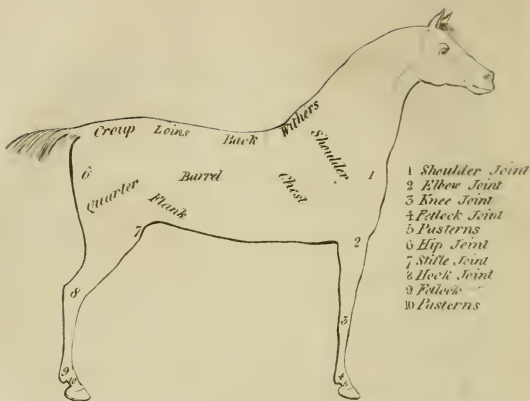 Croup Loins Back Withers
Shoulder
Quarter Barrel Chest
Flank
6
1
7
2
8
3
9
10
4
5
1 Shoulder Joint
2 Elbow Joint
3 Knee Joint
4 Fetlock Joint
5 Pasterns
6 Hip Joint
7 Stifle Joint
8 Hock Joint
9 Fetlock
10 Pasterns